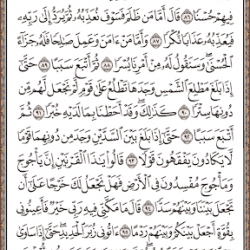 فِيهِمْ حُسْنًا ٨٦ قَالَ أَمَّا مَن ظَلَمَ فَسَوْفَ نُعَذِّبُهُ ثُمَّ يُرَدُّ إِلَىٰ رَبِّهِ
فَيُعَذِّبُهُ عَذَابًا نُّكْرًا ٨٧ وَأَمَّا مَنْ ءَامَنَ وَعَمِلَ صَٰلِحًا فَلَهُ جَزَآءً
ٱلْحُسْنَىٰ وَسَنَقُولُ لَهُ مِنْ أَمْرِنَا يُسْرًا ٨٨ ثُمَّ أَتْبَعَ سَبَبًا ٨٩ حَتَّىٰٓ
إِذَا بَلَغَ مَطْلِعَ ٱلشَّمْسِ وَجَدَهَا تَطْلُعُ عَلَىٰ قَوْمٍ لَّمْ نَجْعَل لَّهُم مِّن
دُونِهَا سِتْرًا ٩٠ كَذَٰلِكَ وَقَدْ أَحَطْنَا بِمَا لَدَيْهِ خُبْرًا ٩١ ثُمَّ
أَتْبَعَ سَبَبًا ٩٢ حَتَّىٰٓ إِذَا بَلَغَ بَيْنَ ٱلسَّدَّيْنِ وَجَدَ مِن دُونِهِمَا قَوْمًا
لَّا يَكَادُونَ يَفْقَهُونَ قَوْلًا ٩٣ قَالُوا۟ يَٰذَا ٱلْقَرْنَيْنِ إِنَّ يَأْجُوجَ
وَمَأْجُوجَ مُفْسِدُونَ فِي ٱلْأَرْضِ فَهَلْ نَجْعَلُ لَكَ خَرْجًا عَلَىٰٓ أَن
تَجْعَلَ بَيْنَنَا وَبَيْنَهُمْ سَدًّا ٩٤ قَالَ مَا مَكَّنِّي فِيهِ رَبِّي خَيْرٌ فَأَعِينُونِي
بِقُوَّةٍ أَجْعَلْ بَيْنَكُمْ وَبَيْنَهُمْ رَدْمًا ٩٥ ءَاتُونِي زُبَرَ ٱلْحَدِيدِ حَتَّىٰٓ إِذَا